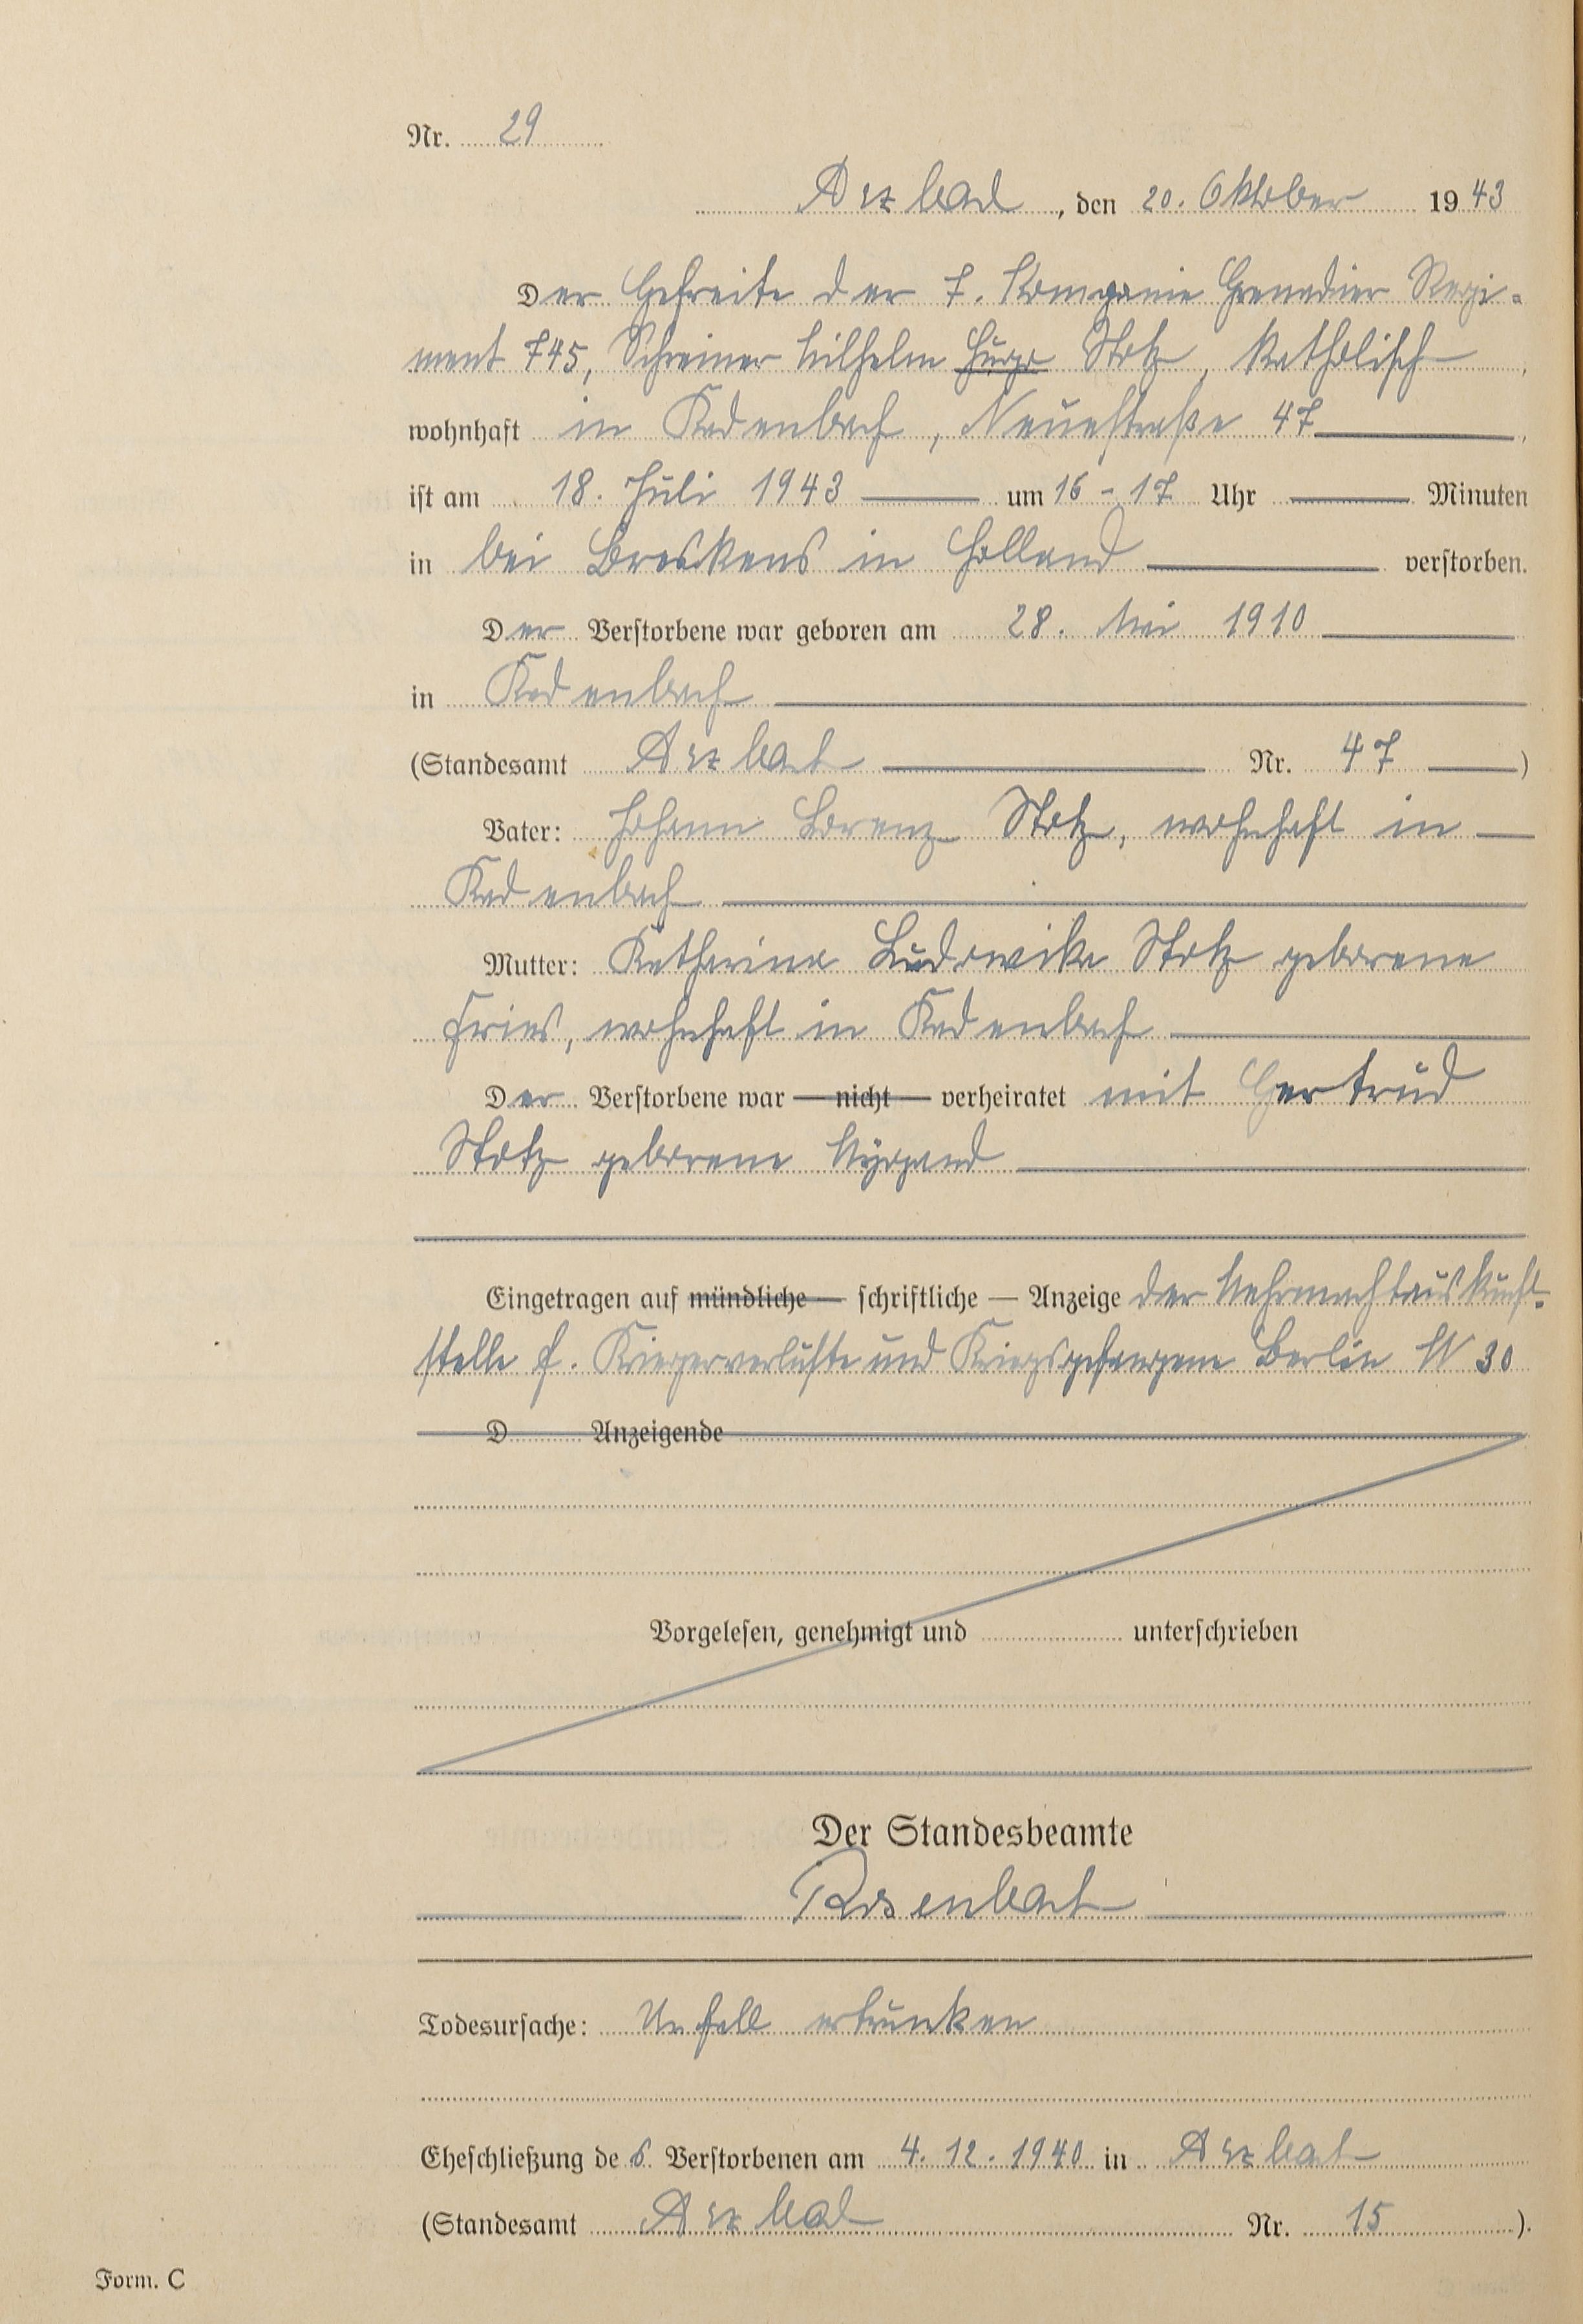 Nr. 29
Arzbach, den 20. Oktober 1943
Der Gefreite der 7. Kompanie Grenadier Regi-
ment 745, Schreiner Wilhelm Hugo Stotz, katholisch,
wohnhaft in Kadenbach, Neuestraße 47,
ist am 18. Juli 1943 um 16-17 Uhr Minuten
in bei Breskens in Holland verstorben.
Der Verstorbene war geboren am 28. Mai 1910
in Kadenbach
(Standesamt Arzbach Nr. 47)
Vater: Johann Lorenz Stotz, wohnhaft in
Kadenbach
Mutter: Katharina Ludowika Stotz geborene
Fries, wohnhaft in Kadenbach
Der Verstorbene war — nicht — verheiratet mit Gertrud
Stotz geborene Wygand
Eingetragen auf mündliche — schriftliche — Anzeige der Wehrmachtauskunft-
stelle f. Kriegerverluste und Kriegsgefangene Berlin W 30
D Anzeigende
Vorgelesen, genehmigt und unterschrieben
Der Standesbeamte
Rosenbach
Todesursache: Unfall ertrunken
Eheschließung des Verstorbenen am 4.12.1940 in Arzbach
(Standesamt Arzbach Nr. 15).
Form. C